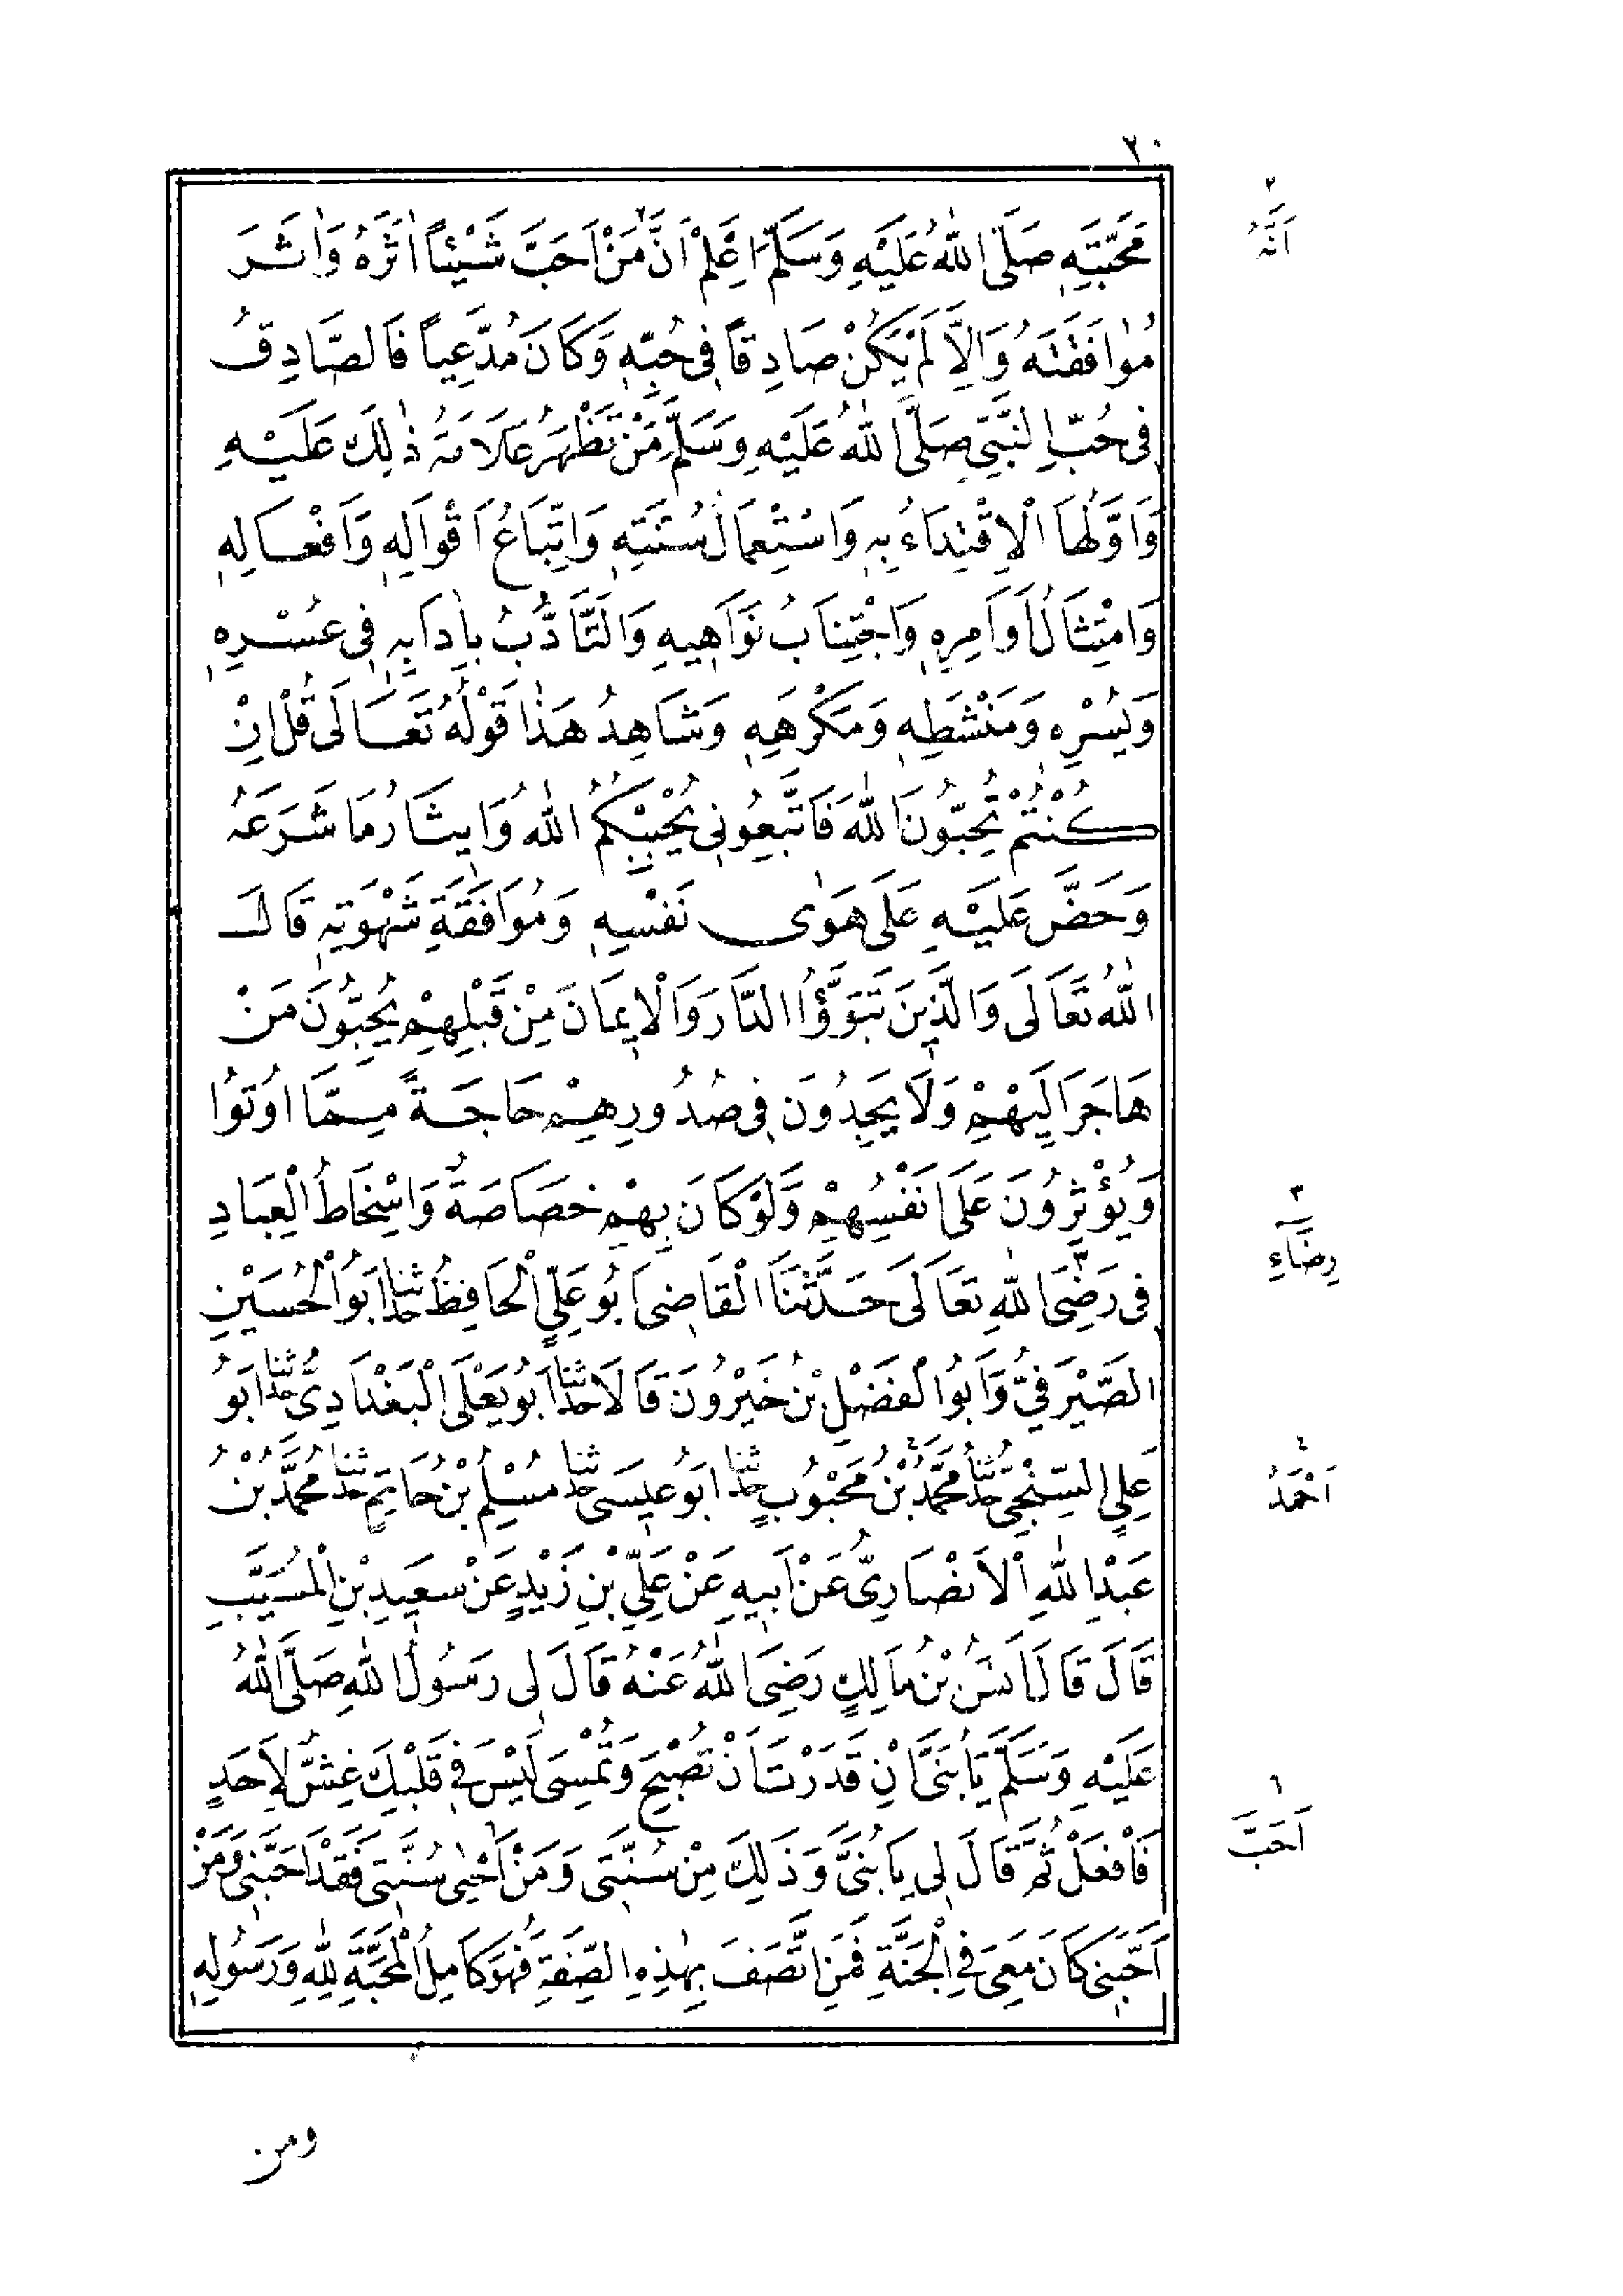 ٢٠
مَحَبَّتِهِ صَلَّى اللهُ عَلَيْهِ وَسَلَّمَ اِعْلَمْ اَنَّ ٢ مَنْ اَحَبَّ شَيْئاً اٰثَرَهُ وَاٰثَرَ
اَنَّهُ ٢
مُوٰافَقَتَهُ وَاِلَّا لَمْ يَكُنْ صَادِقاً فِى حُبِّهِ وَكَانَ مُدَّعِياً فَالصَّادِقُ
فِى حُبِّ النَّبِيِّ صَلَّى اللهُ عَلَيْهِ وَسَلَّمَ مَنْ تَظْهَرُ عَلَامَةُ ذٰلِكَ عَلَيْهِ
وَاَوَّلُهَا الْاِقْتِدَاءُ بِهِ وَاسْتِعْمَالُ سُنَّتِهِ وَاتِّبَاعُ اَقْوَالِهِ وَاَفْعَالِهِ
وَامْتِثَالُ اَوَامِرِهِ وَاجْتِنَابُ نَوَاهِيهِ وَالتَّأَدُّبُ بِاٰدَابِهِ فِى عُسْرِهِ
وَيُسْرِهِ وَمَنْشَطِهِ وَمَكْرَهِهِ وَشَاهِدُ هَذٰا قَوْلُهُ تَعَالَى قُلْ اِنْ
كُنْتُمْ تُحِبُّونَ اللهَ فَاتَّبِعُونِى يُحْبِبْكُمُ اللهُ وَاِيثَارُ مَا شَرَعَهُ
وَحَضَّ عَلَيْهِ عَلَى هَوٰى نَفْسِهِ وَمُوَافَقَةِ شَهْوَتِهِ قَالَ
اللهُ تَعَالَى وَالَّذِينَ تَبَوَّؤُا الدَّارَ وَالْاِيمَانَ مِنْ قَبْلِهِمْ يُحِبُّونَ مَنْ
هَاجَرَ اِلَيْهِمْ وَلَا يَجِدُونَ فِى صُدُورِهِمْ حَاجَةً مِمَّا اُوتُوا
وَيُؤْثِرُونَ عَلَى اَنْفُسِهِمْ وَلَوْ كَانَ بِهِمْ خَصَاصَةٌ وَاِسْخَاطُ الْعِبَادِ
فِى رَضِىَ ٣ اللهِ تَعَالَى حَدَّثَنَا الْقَاضِى اَبُو عَلِيٍّ الْحَافِظُ حدثنا اَبُو الْحُسَيْنِ
رِضَاءِ ٣
الصَّيْرَفِيُّ وَاَبُو الْفَضْلِ بْنُ خَيْرُونَ قَالَا حدثنا اَبُو يَعْلَى الْبَغْدَادِىُّ حدثنا اَبُو
عَلِيٍ السِّنْجِىُّ حدثنا مُحَمَّدُ ٤ بْنُ مَحْبُوبٍ حدثنا اَبُو عِيسَى حدثنا مُسْلِمُ بْنُ حَاتِمٍ حدثنا مُحَمَّدُ بْنُ
اَحْمَدُ ٤
عَبْدِ اللهِ الْاَنْصَارِىُّ عَنْ اَبِيهِ عَنْ عَلِيِّ بْنِ زَيْدٍ عَنْ سَعِيدِ بْنِ الْمُسَيَّبِ
قَالَ قَالَ اَنَسُ بْنُ مَالِكٍ رَضِىَ اللهُ عَنْهُ قَالَ لِى رَسُولُ اللهِ صَلَّى اللهُ
عَلَيْهِ وَسَلَّمَ يَا بُنَىَّ اِنْ قَدَرْتَ اَنْ تُصْبِحَ وَتُمْسِىَ لَيْسَ فِى قَلْبِكَ غِشٌّ لِاَحَدٍ
فَافْعَلْ ثُمَّ قَالَ لِى يَا بُنَىَّ وَذَلِكَ مِنْ سُنَّتِى وَمَنْ اَحْيٰى ٦ سُنَّتِى فَقَدْ اَحَبَّنِى وَمَنْ
اَحَبَّ ٦
اَحَبَّنِى كَانَ مَعِىَ فِى الْجَنَّةِ فَمَنِ اتَّصَفَ بِهٰذِهِ الصِّفَةِ فَهُوَ كَامِلُ الْمَحَبَّةِ لِلّٰهِ وَرَسُولِهِ
ومن